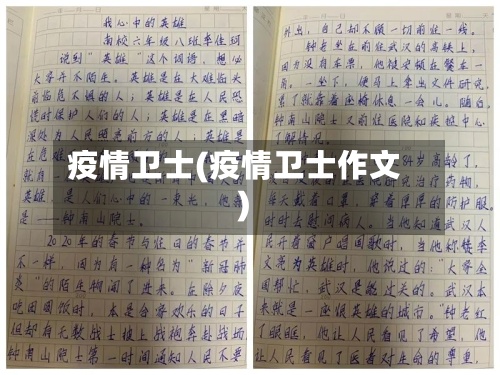 我心中的英雄
南校六年级八班李佳珂
说到"英雄"这个词语，想必
大家并不陌生。英雄是在大难临头
前临危不惧的人；英雄是在人民恐
慌时保护人们的人；英雄是在黑暗
英雄，是人们心中的一束光，他就
是——钟南山院士。
2020年的春节与往日的春节并
不一样，因为有一种名为"新冠肺
炎"的陌生物闯了进来。在除夕夜
吃团圆饭时，本是合家欢乐的日子
但却有无数战士披上战袍奔赴战场
钟南山院士第一时间通知人民不要
外出，自己却不顾一切前往一线。
钟老坐在前往武汉的高铁上，
因为没有车票，他被安顿在餐车一
角。一坐下，便马上拿出文件研究，
累了就靠着座椅休息一会儿。随后，
钟南山院士又前往医院和疾控中心
了解情况。
84岁高龄了，
研究治疗药物，
每天戴着口罩，穿着厚厚的防护服，
时时去慰问病人。当他知道武汉人
民开着窗户唱国歌时，当他称赞李
文亮为英雄时，他说过的："大家全
国帮忙，武汉是能过关的。武汉本
来就是一座很英雄的城市。"钟老红
了眼眶，他让人民看见了希望，他
让人民看见了医者对生命的尊重，
疫情卫士(疫情卫士作文
)